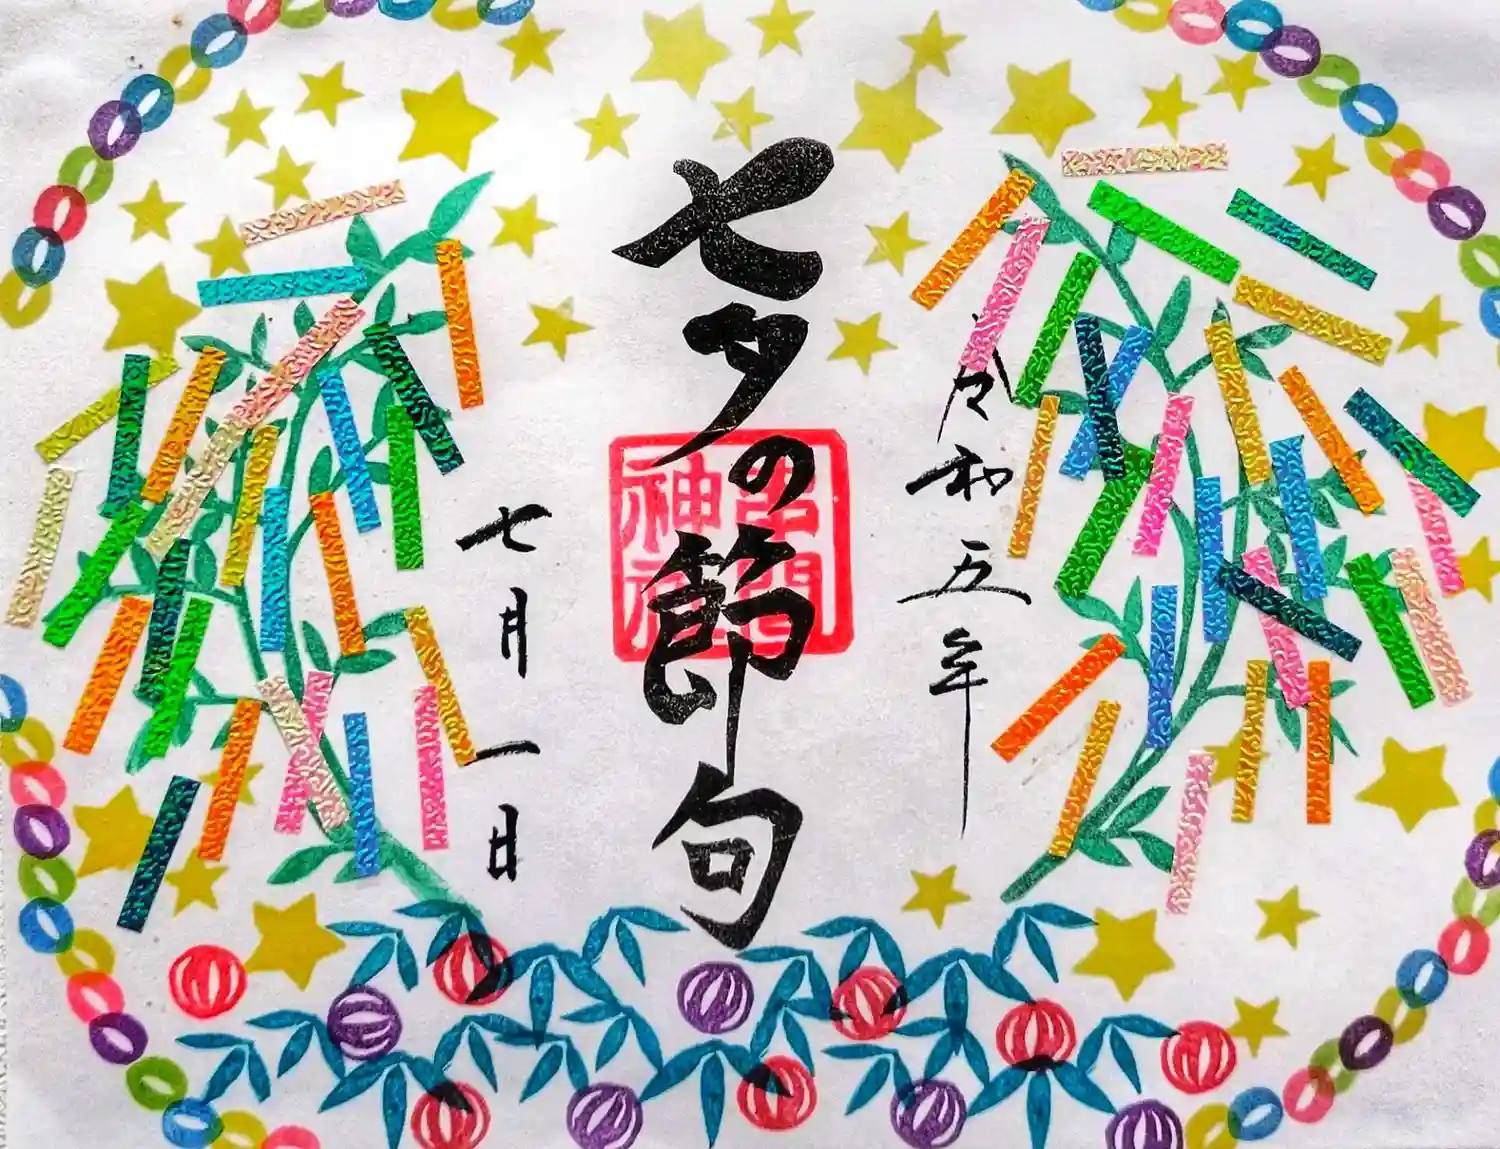 令和五年
七夕の節句
七月一日